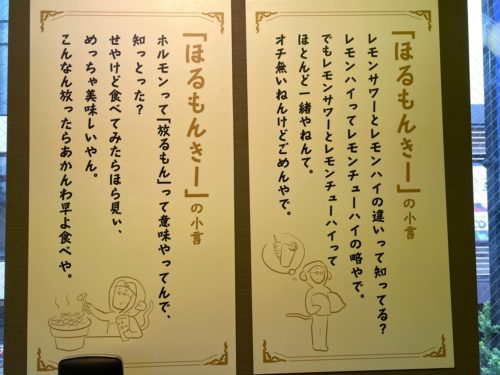 「ほるもんきー」の小言
レモンサワーとレモンハイの違いって知ってる?
レモンハイってレモンチューハイの略やで。
でもレモンサワーとレモンチューハイって
ほとんど一緒やねんて。
オチ無いねんけどごめんやで。
「ほるもんきー」の小言
ホルモンって「放るもん」って意味やってんで、
知っとった?
せやけど食べてみたらほら見ぃ、
めっちゃ美味しいやん。
こんなん放ったらあかんわ早よ食べや。